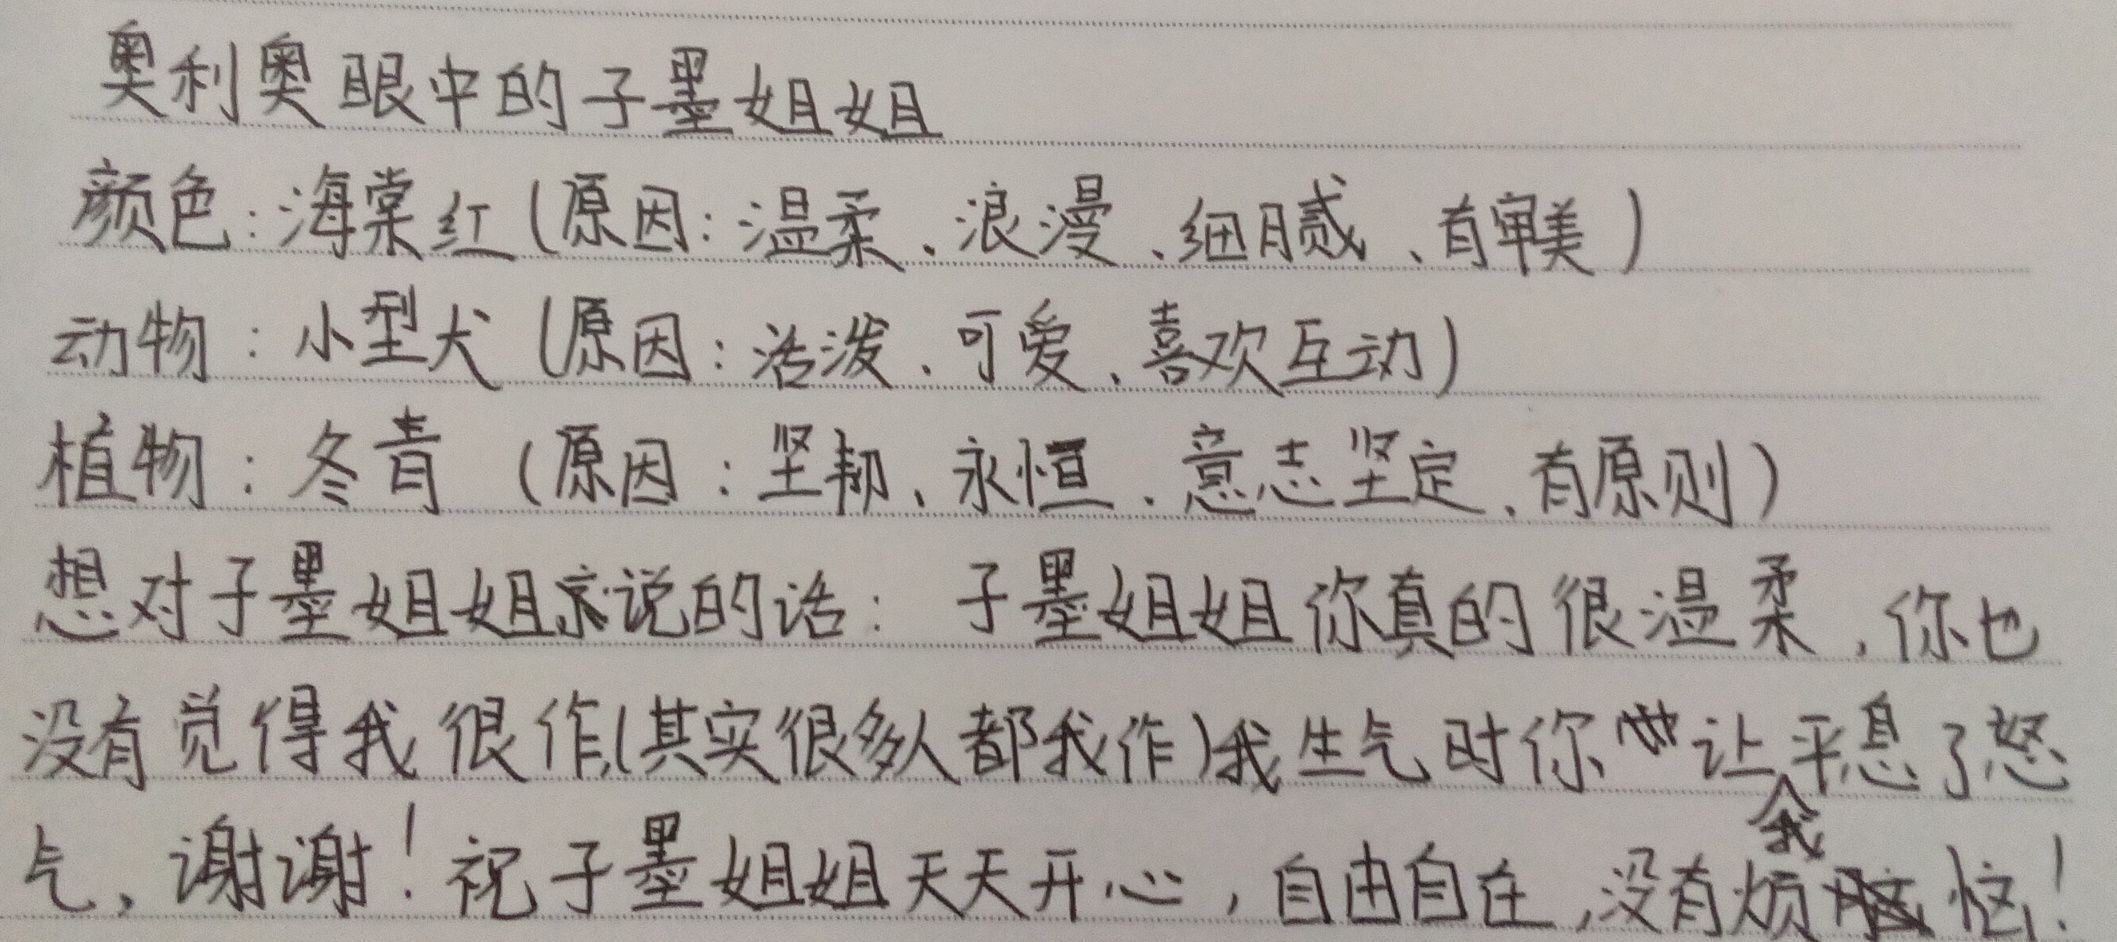 奥利奥眼中的子墨姐姐
颜色:海棠红(原因:温柔、浪漫、细腻、有审美)
动物:小型犬(原因:活泼、可爱、喜欢互动)
植物:冬青(原因:坚韧、永恒、意志坚定、有原则)
想对子墨姐姐说的话:子墨姐姐你真的很温柔,你也
没有觉得我很作(其实很多人都我作)我生气时你让我平息了怒
气,谢谢!祝子墨姐姐天天开心,自由自在,没有烦恼!